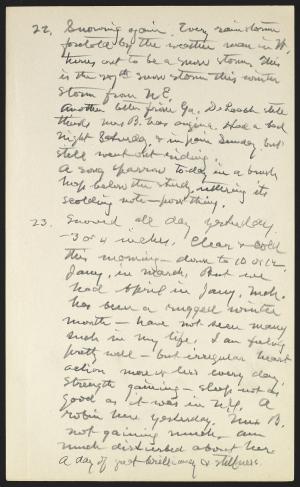 22. Snowing again. Every rain storm
foretold by the weather man in W.
turns out to be a snow storm. This
is the 24th snow storm this winter
storm from N.E.
Another letter from Ga. Dr Leach still
thinks Mrs B. has angina. Had a bad
night Saturday & in pain Sunday but
still went out riding.
A song sparrow to-day in a brush
heap below the study, uttering its
scolding note - poor thing.
23. Snowed all day yesterday,
- 3 or 4 inches. Clear & cold
this morning - down to 10 or 12.
Jany, in March. But we
had April in Jany. Mch.
has been a rugged winter
month - have not seen many
such in my life. I am feeling
pretty well - but irregular heart
action more or less every day.
Strength gaining - sleep not as
good as it was in N.Y. A
robin here yesterday. Mrs B.
not gaining much - am
much disturbed about her
A day of great brilliancy & stillness.